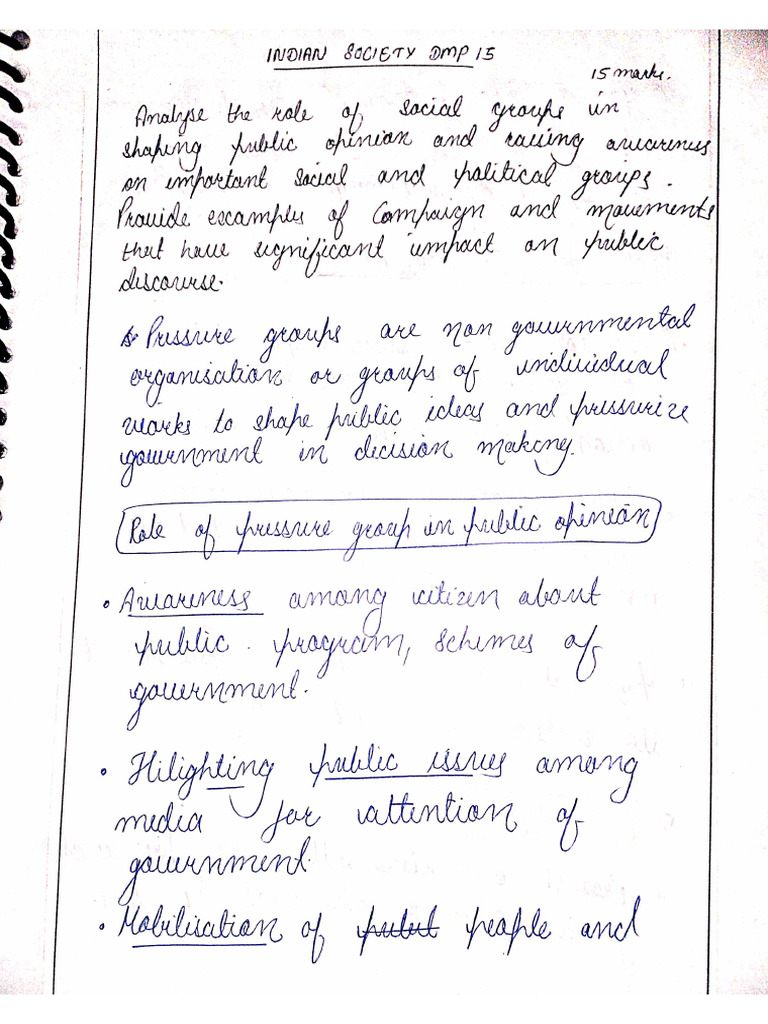 INDIAN SOCIETY DMP 15
15 marks.
Analyse the role of social groups in
shaping public opinion and raising awareness
on important social and political groups.
Provide examples of Campaign and movements
that have significant impact on public
discourse.
Pressure groups are non governmental
organisation or groups of individual
works to shape public ideas and pressurize
government in decision making.
Role of pressure group in public opinion
• Awareness among citizen about
public program, schemes of
government.
• Hilighting public issues among
media for attention of
government.
• Mobilisation of people and